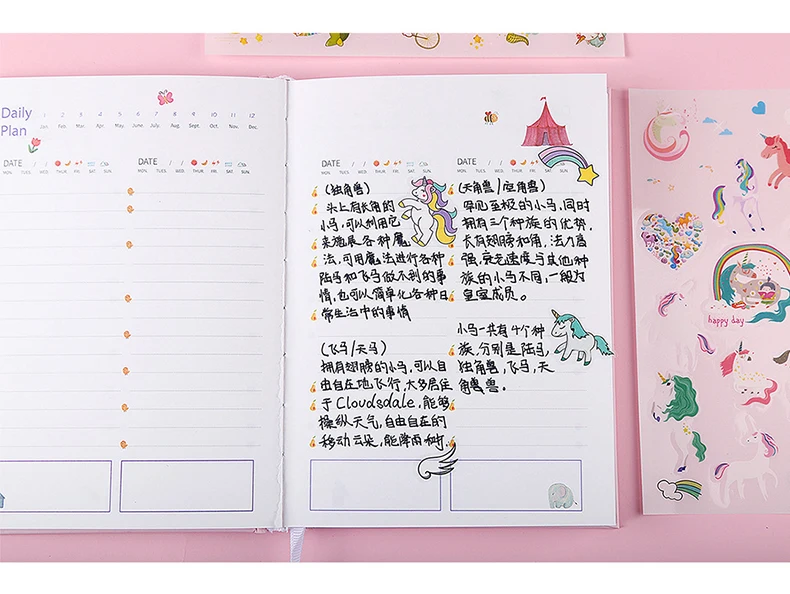 Daily
Plan
1 2 3 4 5 6 7 8 9 10 11 12
Jan. Feb. Mar. Apr. May. June. July. Aug. Sept. Oct. Nov. Dec.
DATE / /
MON. TUES. WED. THUR. FRI. SAT. SUN.
DATE / /
MON. TUES. WED. THUR. FRI. SAT. SUN.
DATE / /
MON. TUES. WED. THUR. FRI. SAT. SUN.
(独角兽)
头上有长角的
小马,可以利用它
来施展各种魔
法,可用魔法进行各种
陆马和飞马做不到的事
情,也可以简单化各种日
常生活中的事情
(飞马/天马)
拥有翅膀的小马,可以自
由自在地飞行,大多居住
于Cloudsdale,能够
操纵天气,自由自在的
移动云朵,能降雨
DATE / /
MON. TUES. WED. THUR. FRI. SAT. SUN.
(天角兽/
罕见至极的小马,同时
拥有三个种族的优势,
长有翅膀和角,法力高
强,衰老速度与其他种
族的小马不同,一般为
皇室成员。
小马一共有4个种
族,分别是陆马,
独角兽,飞马,天
角兽。
happy day